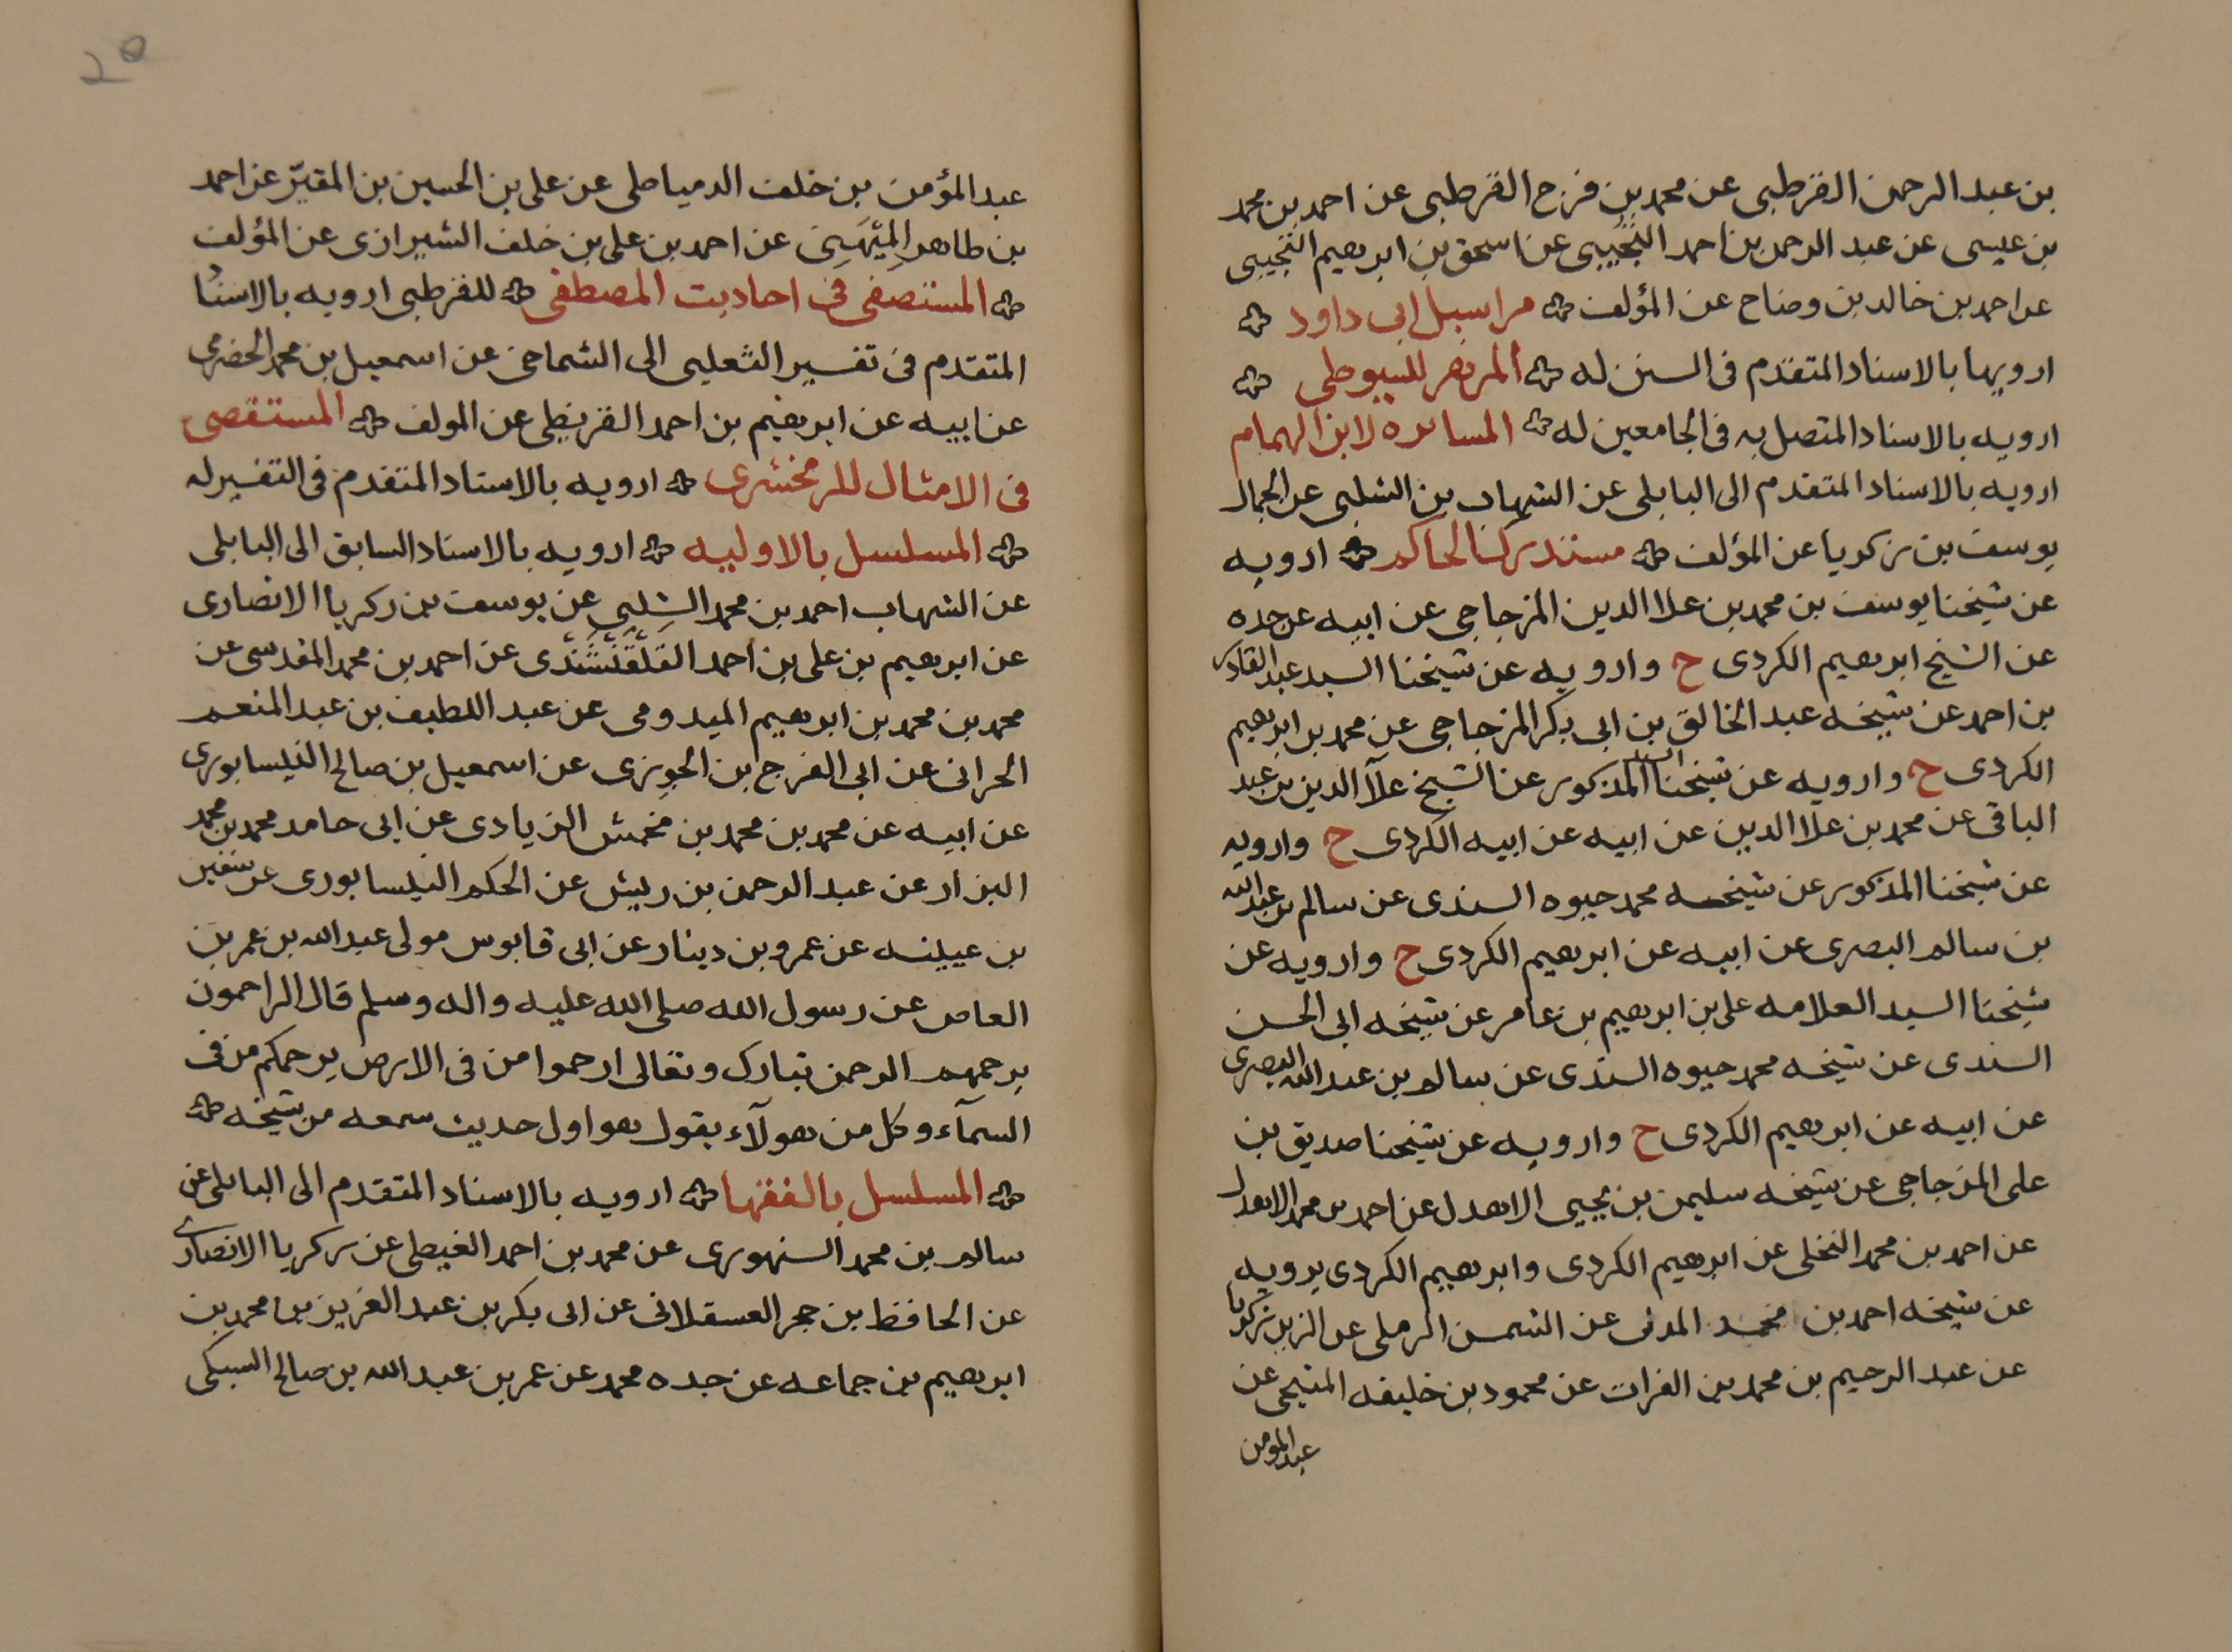 بن عبد الرحمن القرطبى عن محمد بن فرح القرطبى عن احمد بن محمد
بن عيسى عن عبد الرحمن بن احمد التجيبى عن اسحق بن ابرهيم التجيبى
عن احمد بن خالد بن وضاح عن المؤلف مراسيل ابى داود
ارويها بالاسناد المتقدم فى السنن له المزهر للسيوطى
ارويه بالاسناد المتصل به فى الجامعين له المسايره لابن الهمام
ارويه بالاسناد المتقدم الى البابلى عن الشهاب بن الشلبى عن الجمال
يوسف بن زكريا عن المؤلف مستدرك الحاكم ارويه
عن شيخنا يوسف بن محمد بن علا الدين المزجاجى عن ابيه عن جده
عن الشيخ ابرهيم الكردى ح وارويه عن شيخنا السيد عبد القادر
بن احمد عن شيخه عبد الخالق بن ابى بكر المزجاجى عن محمد بن ابرهيم
الكردى ح وارويه عن شيخنا السيد المذكور عن الشيخ علآ الدين بن عبد
الباقى عن محمد بن علا الدين عن ابيه عن ابيه الكردى ح وارويه
عن شيخنا المذكور عن شيخه محمد حيوه السندى عن سالم بن عبد الله
بن سالم البصرى عن ابيه عن ابرهيم الكردى ح وارويه عن
شيخنا السيد العلامه على بن ابرهيم بن عامر عن شيخه ابى الحسن
السندى عن شيخه محمد حيوه السندى عن سالم بن عبد الله البصرى
عن ابيه عن ابرهيم الكردى ح وارويه عن شيخنا صديق بن
على المزجاجى عن شيخه سليمن بن يحيى الاهدل عن احمد بن محمد الاهدل
عن احمد بن محمد النخلى عن ابرهيم الكردى وابرهيم الكردى يرويه
عن شيخه احمد بن محمد المدنى عن الشمس الرملى عن الزين زكريا
عن عبد الرحيم بن محمد بن الفرات عن محمود بن خليفه المنبجى عن
عبد المومن
عبد المؤمن بن خلف الدمياطى عن على بن الحسين بن المقيّر عن احمد
بن طاهر المِيْهَنِى عن احمد بن على بن خلف الشيرازى عن المؤلف
المستصفى فى احاديث المصطفى للقرطبى ارويه بالاسناد
المتقدم فى تفسير الثعلبى الى الشماخى عن اسمعيل بن محمد الحضرمى
عن ابيه عن ابرهيم بن احمد القريظى عن المولف المستقصى
فى الامثال للزمخشرى ارويه بالاسناد المتقدم فى التفسير له
المسلسل بالاوليه ارويه بالاسناد السابق الى البابلى
عن الشهاب احمد بن محمد الشلبى عن يوسف بن زكريا الانصارى
عن ابرهيم بن على بن احمد القَلْقَشَنْدى عن احمد بن محمد المقدسى عن
محمد بن محمد بن ابرهيم الميدومى عن عبد اللطيف بن عبد المنعم
الحرانى عن ابى الفرج ابن الجوزى عن اسمعيل بن صالح النيسابورى
عن ابيه عن محمد بن محمد بن مخمش الزيادى عن ابى حامد محمد بن محمد
البزار عن عبد الرحمن بن ريش عن الحكم النيسابورى عن سفين
بن عيينه عن عمرو بن دينار عن ابى قابوس مولى عبد الله بن عمر بن
العاص عن رسول الله صلى الله عليه واله وسلم قال الراحمون
يرحمهم الرحمن تبارك وتعالى ارحموا من فى الارض يرحمكم من فى
السمآء وكل من هولآء يقول هو اول حديث سمعه من شيخه
المسلسل بالفقها ارويه بالاسناد المتقدم الى البابلى عن
سالم بن محمد السنهورى عن محمد بن احمد الغيطى عن زكريا الانصارى
عن الحافظ بن حجر العسقلانى عن ابى بكر بن عبد العزيز بن محمد بن
ابرهيم بن جماعه عن جده محمد عن عمر بن عبد الله بن صالح السبكى